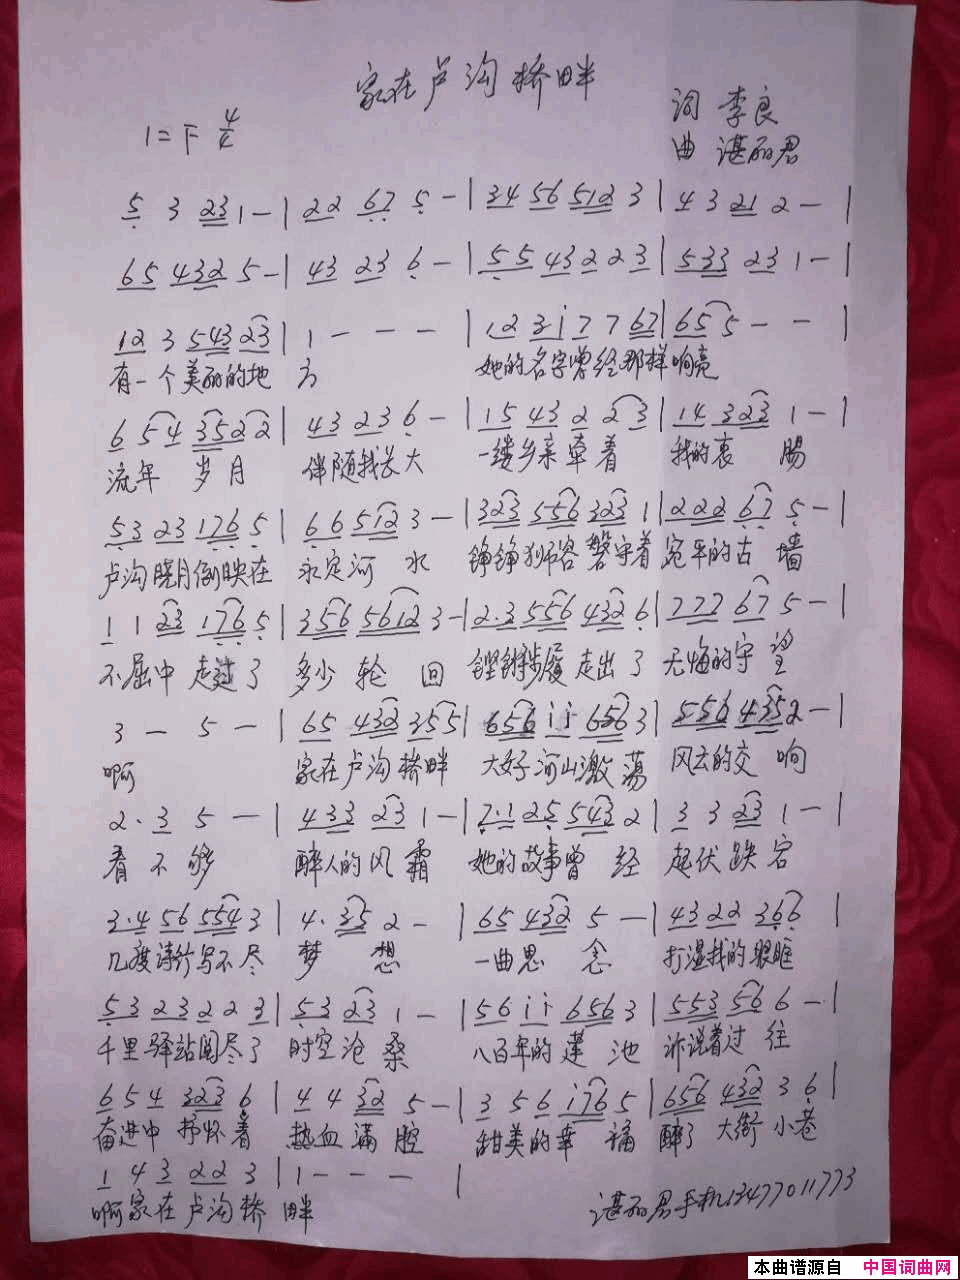 家在卢沟桥畔
词 李良
1=F 4/4
曲 谌丽君
5 3 23 1 - | 22 67 5 - | 34 56 512 3 | 4 3 21 2 - |
65 432 5 - | 43 23 6 - | 55 43 2 23 | 533 23 1 - |
12 3 543 23 | 1 - - - | 12 3i 7 7 67 | 65 5 - - |
有一个美丽的地 方 她的名字曾经那样响亮
6 54 3522 | 43 23 6 - | 15 43 2 23 | 14 323 1 - |
流年 岁月 伴随我长大 一缕乡亲牵着 我的衷 肠
53 23 176 5 | 6 6 512 3 - | 323 556 323 1 | 222 67 5 - |
卢沟晓月倒映在 永定河 水 铮铮狮容磐守着 宛平的古 墙
1 1 23 176 5 | 356 5612 3 - | 2·3 556 432 6 | 777 67 5 - |
不屈中 走过了 多少 轮 回 铿锵步履走出了 无悔的守 望
3 - 5 - | 65 432 355 | 656 ii 656 3 | 556 435 2 - |
啊 家在卢沟桥畔 大好河山激荡 风云的交 响
2· 3 5 - | 433 23 1 - | 7·1 25 543 2 | 3 3 23 1 - |
看不够 醉人的风霜 她的故事曾 经 起伏跌宕
3·4 56 554 3 | 4· 35 2 - | 65 432 5 - | 43 22 366 |
几度诗行写不尽 梦 想 一曲思 念 打湿我的眼眶
53 23 22 3 | 53 23 1 - | 56 ii 656 3 | 553 56 6 - |
千里驿站阅尽了 时空沧桑 八百年的莲 池 诉说着过 往
654 323 6 | 4 4 32 5 - | 3 5 6 i76 5 | 656 432 3 6 |
奋进中 抒怀着 热血满 腔 甜美的幸 福 醉了 大街小巷
1 4 3 22 3 | 1 - - - |
啊家在卢沟桥 畔
谌丽君手机13477011773
本曲谱源自 中国词曲网